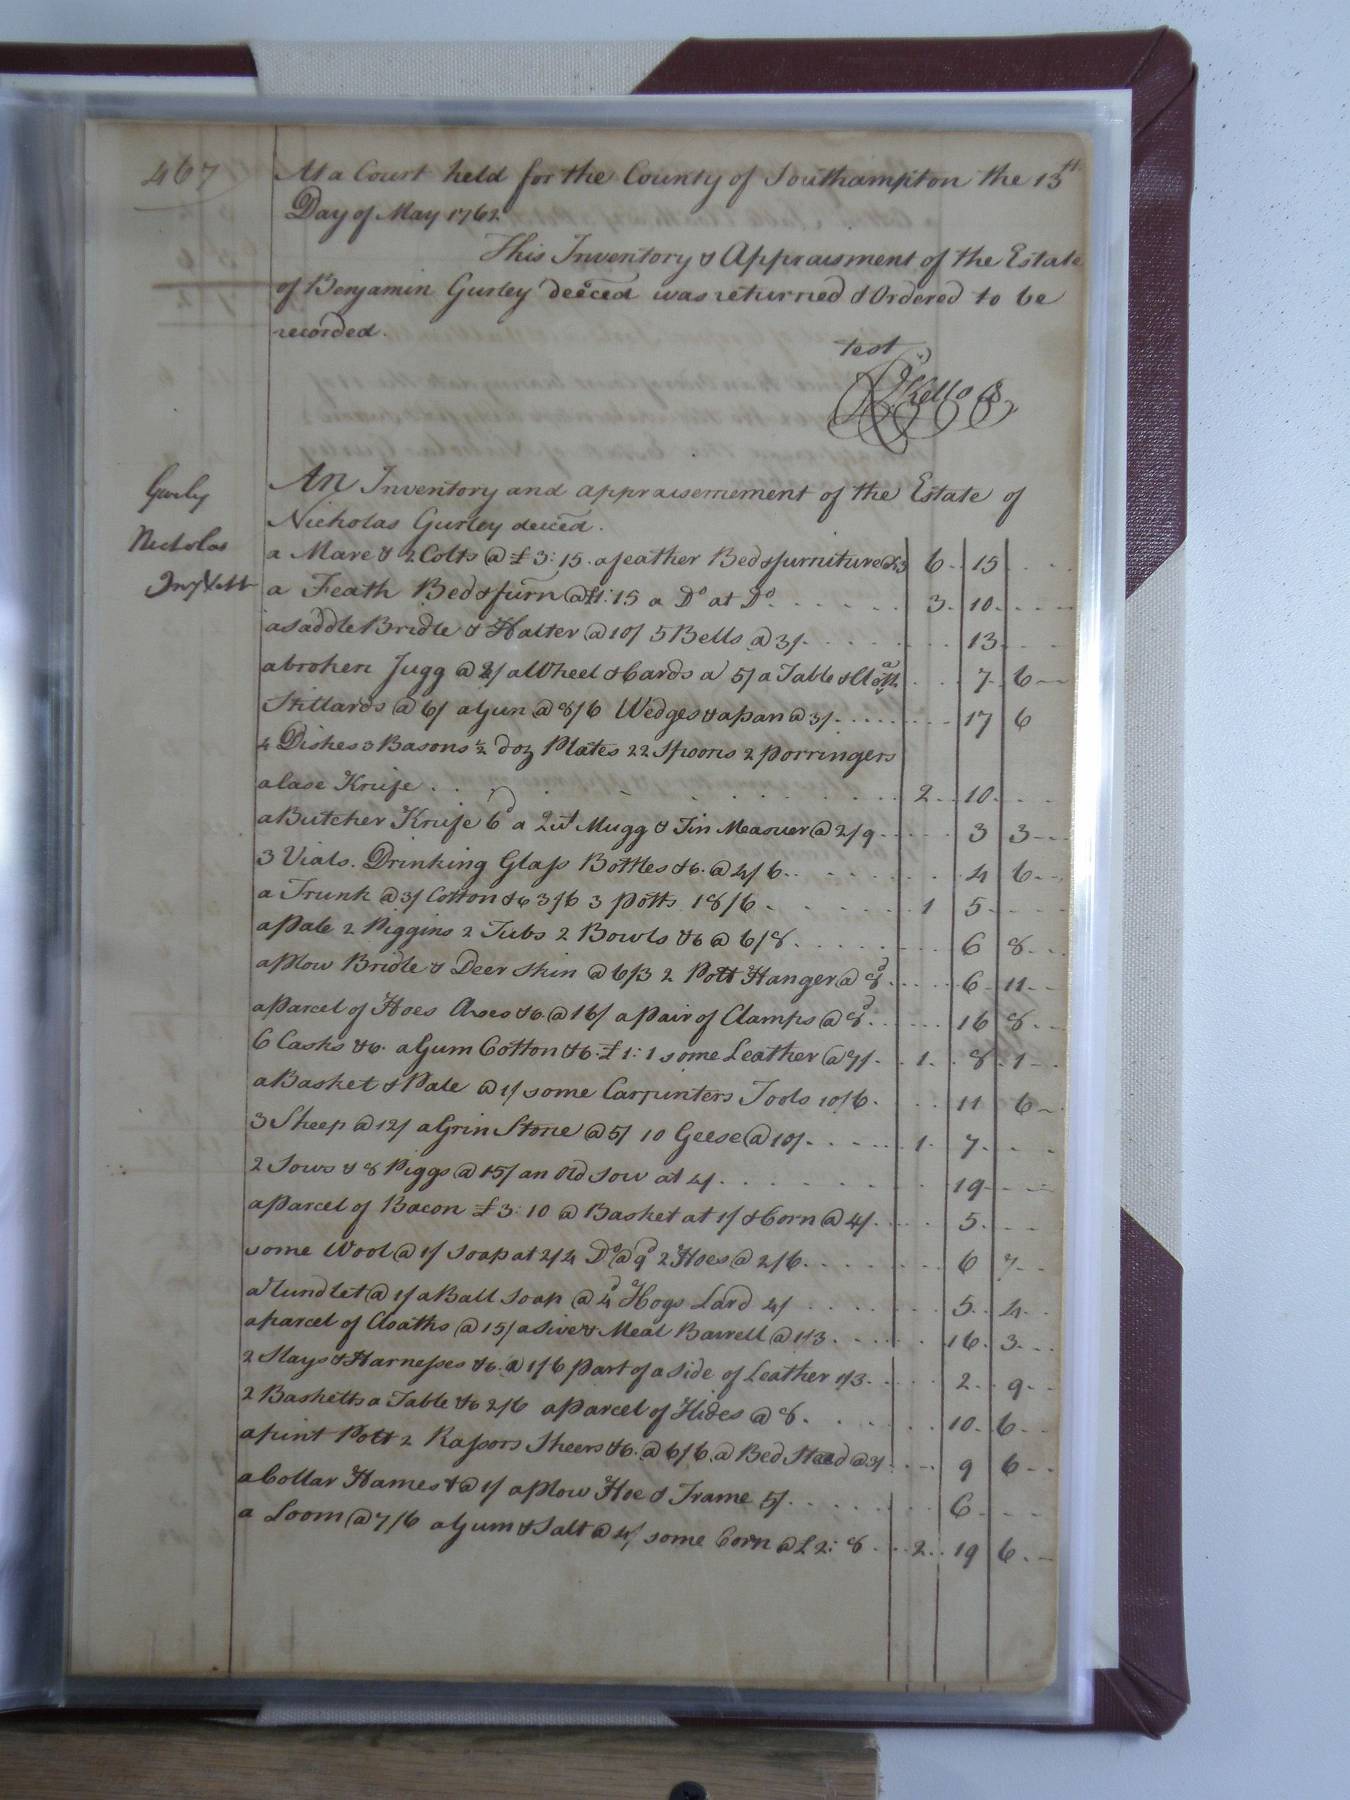 467
At a Court held for the County of Southampton the 13th
Day of May 1762
This Inventory & Appraisment of the Estate
of Benjamin Gurley deĉced was returned & Ordered to be
recorded.
test
Rd Kello CC
Gurley
Nicholas
Inv & Ltt
An Inventory and appraisemement of the Estate of
Nicholas Gurley deĉced.
a Mare & 2 Colts @ £3:15. a feather Bed & furniture @£3 6 15
a Feath Bed & furn @£1:15 a Do at Do 3 10
a saddle Bridle & Halter @ 10/ 5 Bells @ 3/ 13
a broken Jugg @ 2/ a Wheel & Cards a 5/ a Table & Cloth 7 6
Stillards @ 6/ a Gun @ 8/6 Wedges & a pan @ 3/ 17 6
4 Dishes 3 Basons ½ doz Plates 22 Spoons 2 porringers
a Case Knife 2 10
a Butcher Knife 6d a Qut Mugg & Tin Measuer @ 2/9 3 3
3 Vials. Drinking Glass Bottles &c. @ 4/6 4 6
a Trunk @ 3/ Cotton &c 3/6 3 potts 18/6 1 5
a Pale 2 Piggins 2 Tubs 2 Bowls &c @ 6/8 6 8
a Plow Bridle & Deer Skin @ 6/3 2 Pott Hanger @ 8d 6 11
a Parcel of Hoes Axes &c. @ 16/ a Pair of Clamps @ 8d 16 8
6 Casks &c. a Gum Cotton &c. £1:1 some Leather @ 7/ 1 8 1
a Basket & Pale @ 1/ some Carpinters Tools 10/6 11 6
3 Sheep @ 12/ a Grin Stone @ 5/ 10 Geese @ 10/ 1 7
2 Sows & 8 Piggs @ 15/ an Old Sow at 4/ 19
a Parcel of Bacon £3:10 a Basket at 1/ & Corn @ 4/ 5
some Wool @ 1/ soap at 2/4 Do @ 9d 2 Hoes @ 2/6 6 7
a Rundlet @ 1/ a Ball soap @ 4d Hogs Lard 4/ 5 4
a parcel of Cloaths @ 15/ a Sive & Meal Barrell @ 1/3 16 3
2 Slays & Harnesses &c. @ 1/6 part of a side of Leather 1/3 2 9
2 Basketts a Table &c 2/6 a Parcel of Hides @ 8 10 6
a pint Pott 2 Rasors Sheers &c. @ 6/6 a Bed Stead @ 3/ 9 6
a Collar Hames & @ 1/ a Plow Hoe & Frame 5/ 6
a Loom @ 7/6 a Gum & Salt @ 4/ some Corn @ £2:8 2 19 6